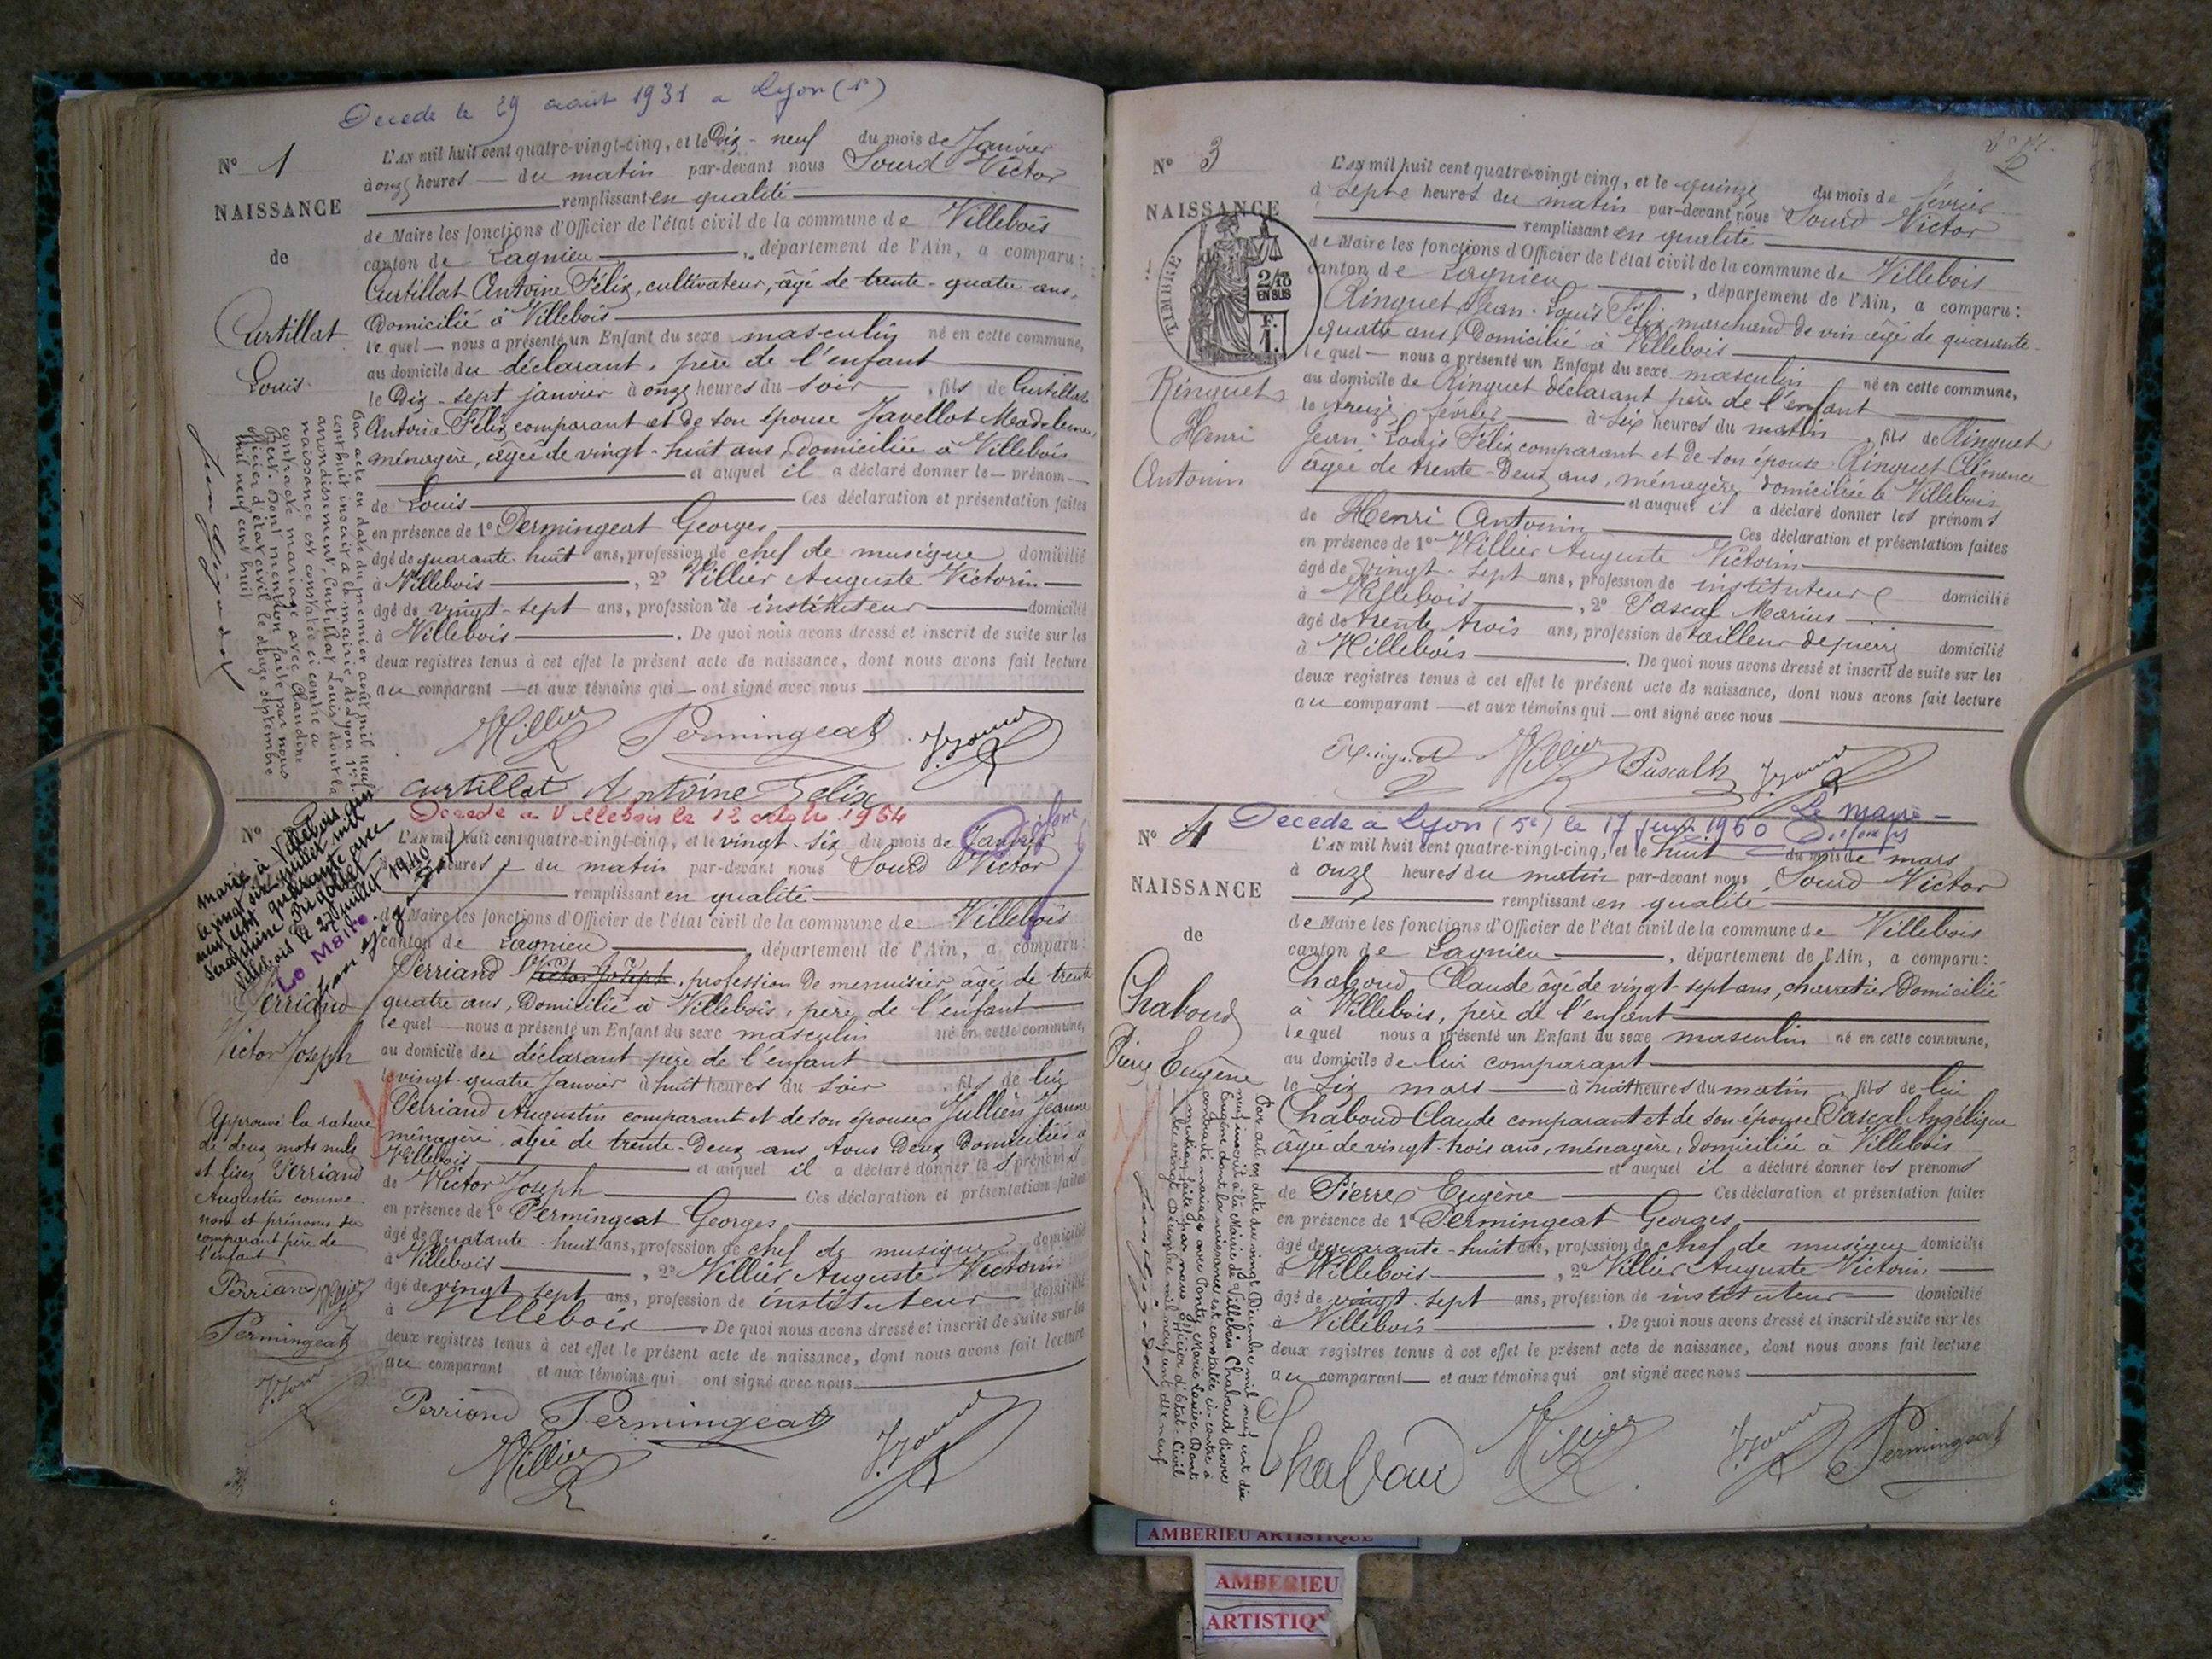 Decede le 29 aout 1931 a Lyon (1e)
N° 1
NAISSANCE
de
Curtillat
Louis
L'AN mil huit cent quatre-vingt-cinq, et le Dix-neuf du mois de Janvier
à onze heures du matin par-devant nous Sourd Victor
remplissant en qualité
de Maire les fonctions d'Officier de l'état civil de la commune de Villebois
canton de Lagnieu, département de l'Ain, a comparu:
Curtillat Antoine Félix, cultivateur, âgé de trente-quatre ans,
Domicilié à Villebois
le quel nous a présenté un Enfant du sexe masculin né en cette commune,
au domicile du déclarant, père de l'enfant
le Dix-sept janvier à onze heures du soir, fils de Curtillat
Antoine Félix comparant et de son épouse Javellot Madeleine,
ménagère, âgée de vingt-huit ans, domiciliée à Villebois
et auquel il a déclaré donner le prénom
de Louis Ces déclaration et présentation faites
en présence de 1° Permingeat Georges
âgé de quarante huit ans, profession de chef de musique domicilié
à Villebois, 2° Villier Auguste Victorin
âgé de vingt-sept ans, profession de instituteur domicilié
à Villebois. De quoi nous avons dressé et inscrit de suite sur les
deux registres tenus à cet effet le présent acte de naissance, dont nous avons fait lecture
au comparant et aux témoins qui ont signé avec nous
Villier Permingeat
curtillat Antoine Felix
Par acte en date du premier août mil neuf
cent huit inscrit à la mairie de Lyon 1er
arrondissement, Curtillat Louis dont la
naissance est constatée ci contre a
contracté mariage avec Claudine
dont mention faite par nous
officier d'état civil le douze septembre
mil neuf cent huit
Decede a Villebois le 12 octobre 1964
N°
marié à Villebois
le vingt six juillet mil
neuf cent quarante avec
Villebois le 27 juillet 1940
Le Maire
Perriand
Victor Joseph
L'AN mil huit cent quatre-vingt-cinq, et le vingt-six du mois de Janvier
heures du matin par-devant nous Sourd Victor
remplissant en qualité
de Maire les fonctions d'Officier de l'état civil de la commune de Villebois
canton de Lagnieu département de l'Ain, a comparu:
Perriand Victor Joseph, profession de menuisier âgé de trente
quatre ans, Domicilié à Villebois, père de l'enfant
le quel nous a présenté un Enfant du sexe masculin né en cette commune,
au domicile du déclarant père de l'enfant
le vingt-quatre Janvier à huit heures du soir, fils de lui
Perriand Augustin comparant et de son épouse Jullien Jeanne
ménagère, âgée de trente-Deux ans tous Deux Domiciliés à
Villebois et auquel il a déclaré donner les prénoms
de Victor Joseph Ces déclaration et présentation faites
en présence de 1° Permingeat Georges
âgé de quarante-huit ans, profession de chef de musique domicilié
à Villebois, 2° Villier Auguste Victorin
âgé de vingt sept ans, profession de instituteur domicilié
à Villebois. De quoi nous avons dressé et inscrit de suite sur les
deux registres tenus à cet effet le présent acte de naissance, dont nous avons fait lecture
au comparant et aux témoins qui ont signé avec nous
Approuvé la rature
de deux mots nuls
et lisez Perriand
Augustin comme
nom et prénoms du
comparant père de
l'enfant
Perriand Villier
Permingeat
Perriand Permingeat
Villier
N° 3
NAISSANCE
de
TIMBRE
2/10
EN SUS
Ringuet
Henri
Antonin
L'AN mil huit cent quatre-vingt cinq, et le quinze du mois de février
à Sept heures du matin par-devant nous Sourd Victor
remplissant en qualité
de Maire les fonctions d'Officier de l'état civil de la commune de Villebois
canton de Lagnieu, département de l'Ain, a comparu:
Ringuet Jean-Louis Félix marchand de vin âgé de quarante-
quatre ans, Domicilié à Villebois
le quel nous a présenté un Enfant du sexe masculin né en cette commune,
au domicile de Ringuet déclarant père de l'enfant
le treize février à six heures du matin, fils de Ringuet
Jean-Louis Félix comparant et de son épouse Ringuet Clémence
âgée de trente-Deux ans, ménagère, domiciliée à Villebois
et auquel il a déclaré donner les prénoms
de Henri Antonin Ces déclaration et présentation faites
en présence de 1° Villier Auguste Victorin
âgé de vingt-sept ans, profession de instituteur domicilié
à Villebois, 2° Pascal Marius
âgé de trente trois ans, profession de tailleur de pierre domicilié
à Villebois. De quoi nous avons dressé et inscrit de suite sur les
deux registres tenus à cet effet le présent acte de naissance, dont nous avons fait lecture
au comparant et aux témoins qui ont signé avec nous
Villier
Le Maire
Decede à Lyon (5e) le 17 juin 1960
N° 4
NAISSANCE
de
Chaboud
Pierre Eugène
L'AN mil huit cent quatre-vingt-cinq, et le huit du mois de mars
à onze heures du matin par-devant nous Sourd Victor
remplissant en qualité
de Maire les fonctions d'Officier de l'état civil de la commune de Villebois
canton de Lagnieu, département de l'Ain, a comparu:
Chaboud Claude âgé de vingt-sept ans, charretier Domicilié
à Villebois, père de l'enfant
le quel nous a présenté un Enfant du sexe masculin né en cette commune,
au domicile de lui comparant
le six mars à huit heures du matin, fils de lui
Chaboud Claude comparant et de son épouse Pascal Angélique
âgée de vingt-trois ans, ménagère, domiciliée à Villebois
et auquel il a déclaré donner les prénoms
de Pierre Eugène Ces déclaration et présentation faites
en présence de 1° Permingeat Georges
âgé de quarante-huit ans, profession de chef de musique domicilié
à Villebois, 2° Villier Auguste Victorin
âgé de vingt-sept ans, profession de instituteur domicilié
à Villebois. De quoi nous avons dressé et inscrit de suite sur les
deux registres tenus à cet effet le présent acte de naissance, dont nous avons fait lecture
au comparant et aux témoins qui ont signé avec nous
Par acte en date du vingt Décembre mil neuf cent dix
neuf inscrit à la Mairie de Villebois Chaboud Pierre
Eugène dont la naissance est constatée ci-contre a
contracté mariage avec Ponty Marie Louise. Dont
mention faite par nous Officier d'Etat-Civil
le vingt Décembre mil neuf cent dix neuf
Chaboud Villier Permingeat
AMBERIEU ARTISTIQUE
AMBERIEU
ARTISTIQ